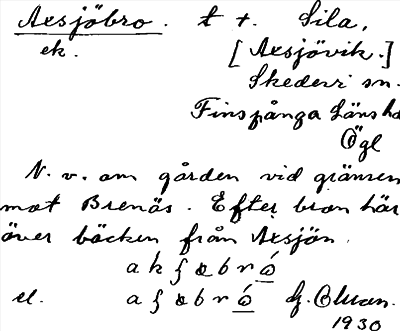 Axsjöbro. t +. Sila,
ek. [Axsjövik.]
Skedevi sn.
Finspånga Läns hd
Ögl
N. v. om gården vid gränsen
mot Brenäs. Efter bron här
över bäcken från Axsjön.
el. G.
1930